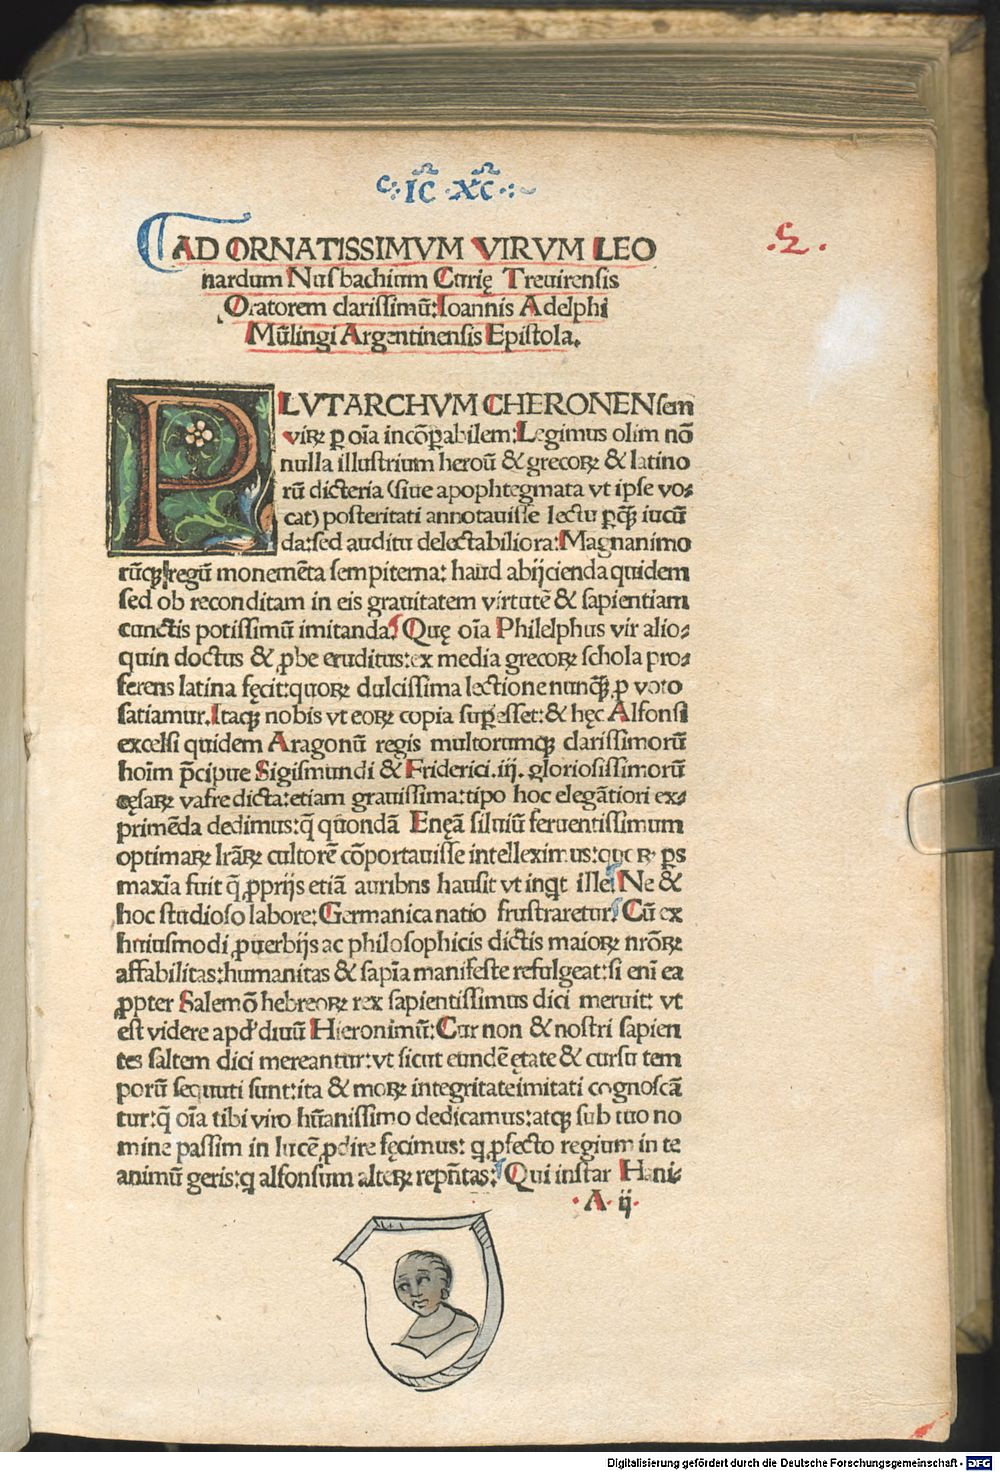 ·:IC̅ ·XC̅·:·
AD ORNATISSIMVM VIRVM LEO
nardum Nusbachium Curię Treuirensis
Oratorem clarissimū: Ioannis Adelphi
Mūlingi Argentinensis Epistola.
·2·
PLVTARCHVM CHERONENsem
virꝝ ꝑ oīa incōꝑabilem: Legimus olim nō
nulla illustrium heroū & grecoꝝ & latino
rū dicteria (siue apophtegmata vt ipse vo⸗
cat) posteritati annotauisse lectu ꝑꝙ̄ iucū
da: sed auditu delectabiliora: Magnanimo
rūꝙ regū monemēta sempiterna: haud abijcienda quidem
sed ob reconditam in eis grauitatem virtutē & sapientiam
cunctis potissimū imitanda. Quę oīa Philelphus vir alio⸗
quin doctus & ꝓbe eruditus: ex media grecoꝝ schola pro⸗
ferens latina fęcit: quoꝝ dulcissima lectione nunꝙ̄ ꝓ voto
satiamur. Itaꝙ nobis vt eoꝝ copia suꝑesset: & hęc Alfonsi
excelsi quidem Aragonū regis multorumꝙ clarissimorū
hoīm p̄cipue Sigismundi & Friderici .iij. gloriosissimorū
cęsaꝝ vafre dicta: etiam grauissima: tipo hoc elegātiori ex⸗
primēda dedimus: q̄ quondā Enęā siluiū feruentissimum
optimaꝝ lrāꝝ cultorē cōportauisse intelleximus: quoꝝ ꝑs
maxīa fuit q̄ ꝓprijs etiā auribus hausit vt inqͥt ille. Ne &
hoc studioso labore: Germanica natio frustraretur. Cū ex
huiusmodi ꝓuerbijs ac philosophicis dictis maioꝝ nrōꝝ
affabilitas: humanitas & sapīa manifeste refulgeat: si enī ea
ꝓpter Salemō hebreoꝝ rex sapientissimus dici meruit: vt
est videre apd' diuū Hieronimū: Cur non & nostri sapien
tes saltem dici mereantur: vt sicut eundē ętate & cursu tem
porū sequuti sunt: ita & moꝝ integritate imitati cognoscā
tur: q̄ oīa tibi viro hūanissimo dedicamus: atꝙ sub tuo no
mine passim in lucē ꝓdire fęcimus: q ꝓfecto regium in te
animū geris: q alfonsum alteꝝ repn̄tas: Qui instar Hani⸗
·A· ij·
Digitalisierung gefördert durch die Deutsche Forschungsgemeinschaft - DFG